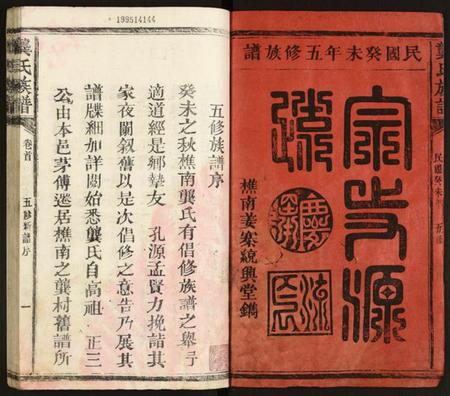 民國癸未年五修族譜
宗支源
遠
慶
衍
流
長
樵南姜寨統興堂鐫
龔氏族譜
民國癸未
199514144
五修族譜序
癸未之秋樵南龔氏有倡修族譜之舉予
適道經是鄉摯友 孔源孟賢力挽請其
家夜闌叙舊以是次倡修之意告乃展其
譜牒細加詳閱始悉龔氏自高祖 正三
公由本邑茅傅遷居樵南之龔村舊譜所
龔氏族譜
卷首
五修新譜序
一